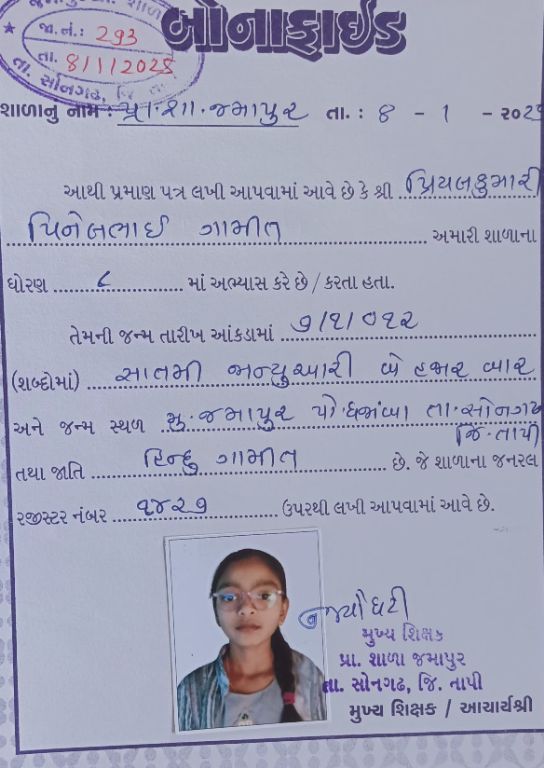 બોનાફાઈડ
જા.નં.: 293
તા. 8/1/2025
તા. સોનગઢ, જિ. તાપી
શાળાનું નામ : પ્રા.શા.જમાપુર તા. : ૪ - ૧ - ૨૦૨૫
આથી પ્રમાણ પત્ર લખી આપવામાં આવે છે કે શ્રી પ્રિયલકુમારી
પિનેલભાઈ ગામીત અમારી શાળાના
ધોરણ ૮ માં અભ્યાસ કરે છે / કરતા હતા.
તેમની જન્મ તારીખ આંકડામાં ૭/૧/૦૧૨
(શબ્દોમાં) સાતમી જાન્યુઆરી બે હજાર બાર
અને જન્મ સ્થળ મુ.જમાપુર પો. તા.સોનગઢ
જિ.તાપી
તથા જાતિ હિન્દુ ગામીત છે. જે શાળાના જનરલ
રજીસ્ટર નંબર ૧૪૨૭ ઉપરથી લખી આપવામાં આવે છે.
મુખ્ય શિક્ષક
પ્રા. શાળા જમાપુર
તા. સોનગઢ, જિ. તાપી
મુખ્ય શિક્ષક / આચાર્યશ્રી